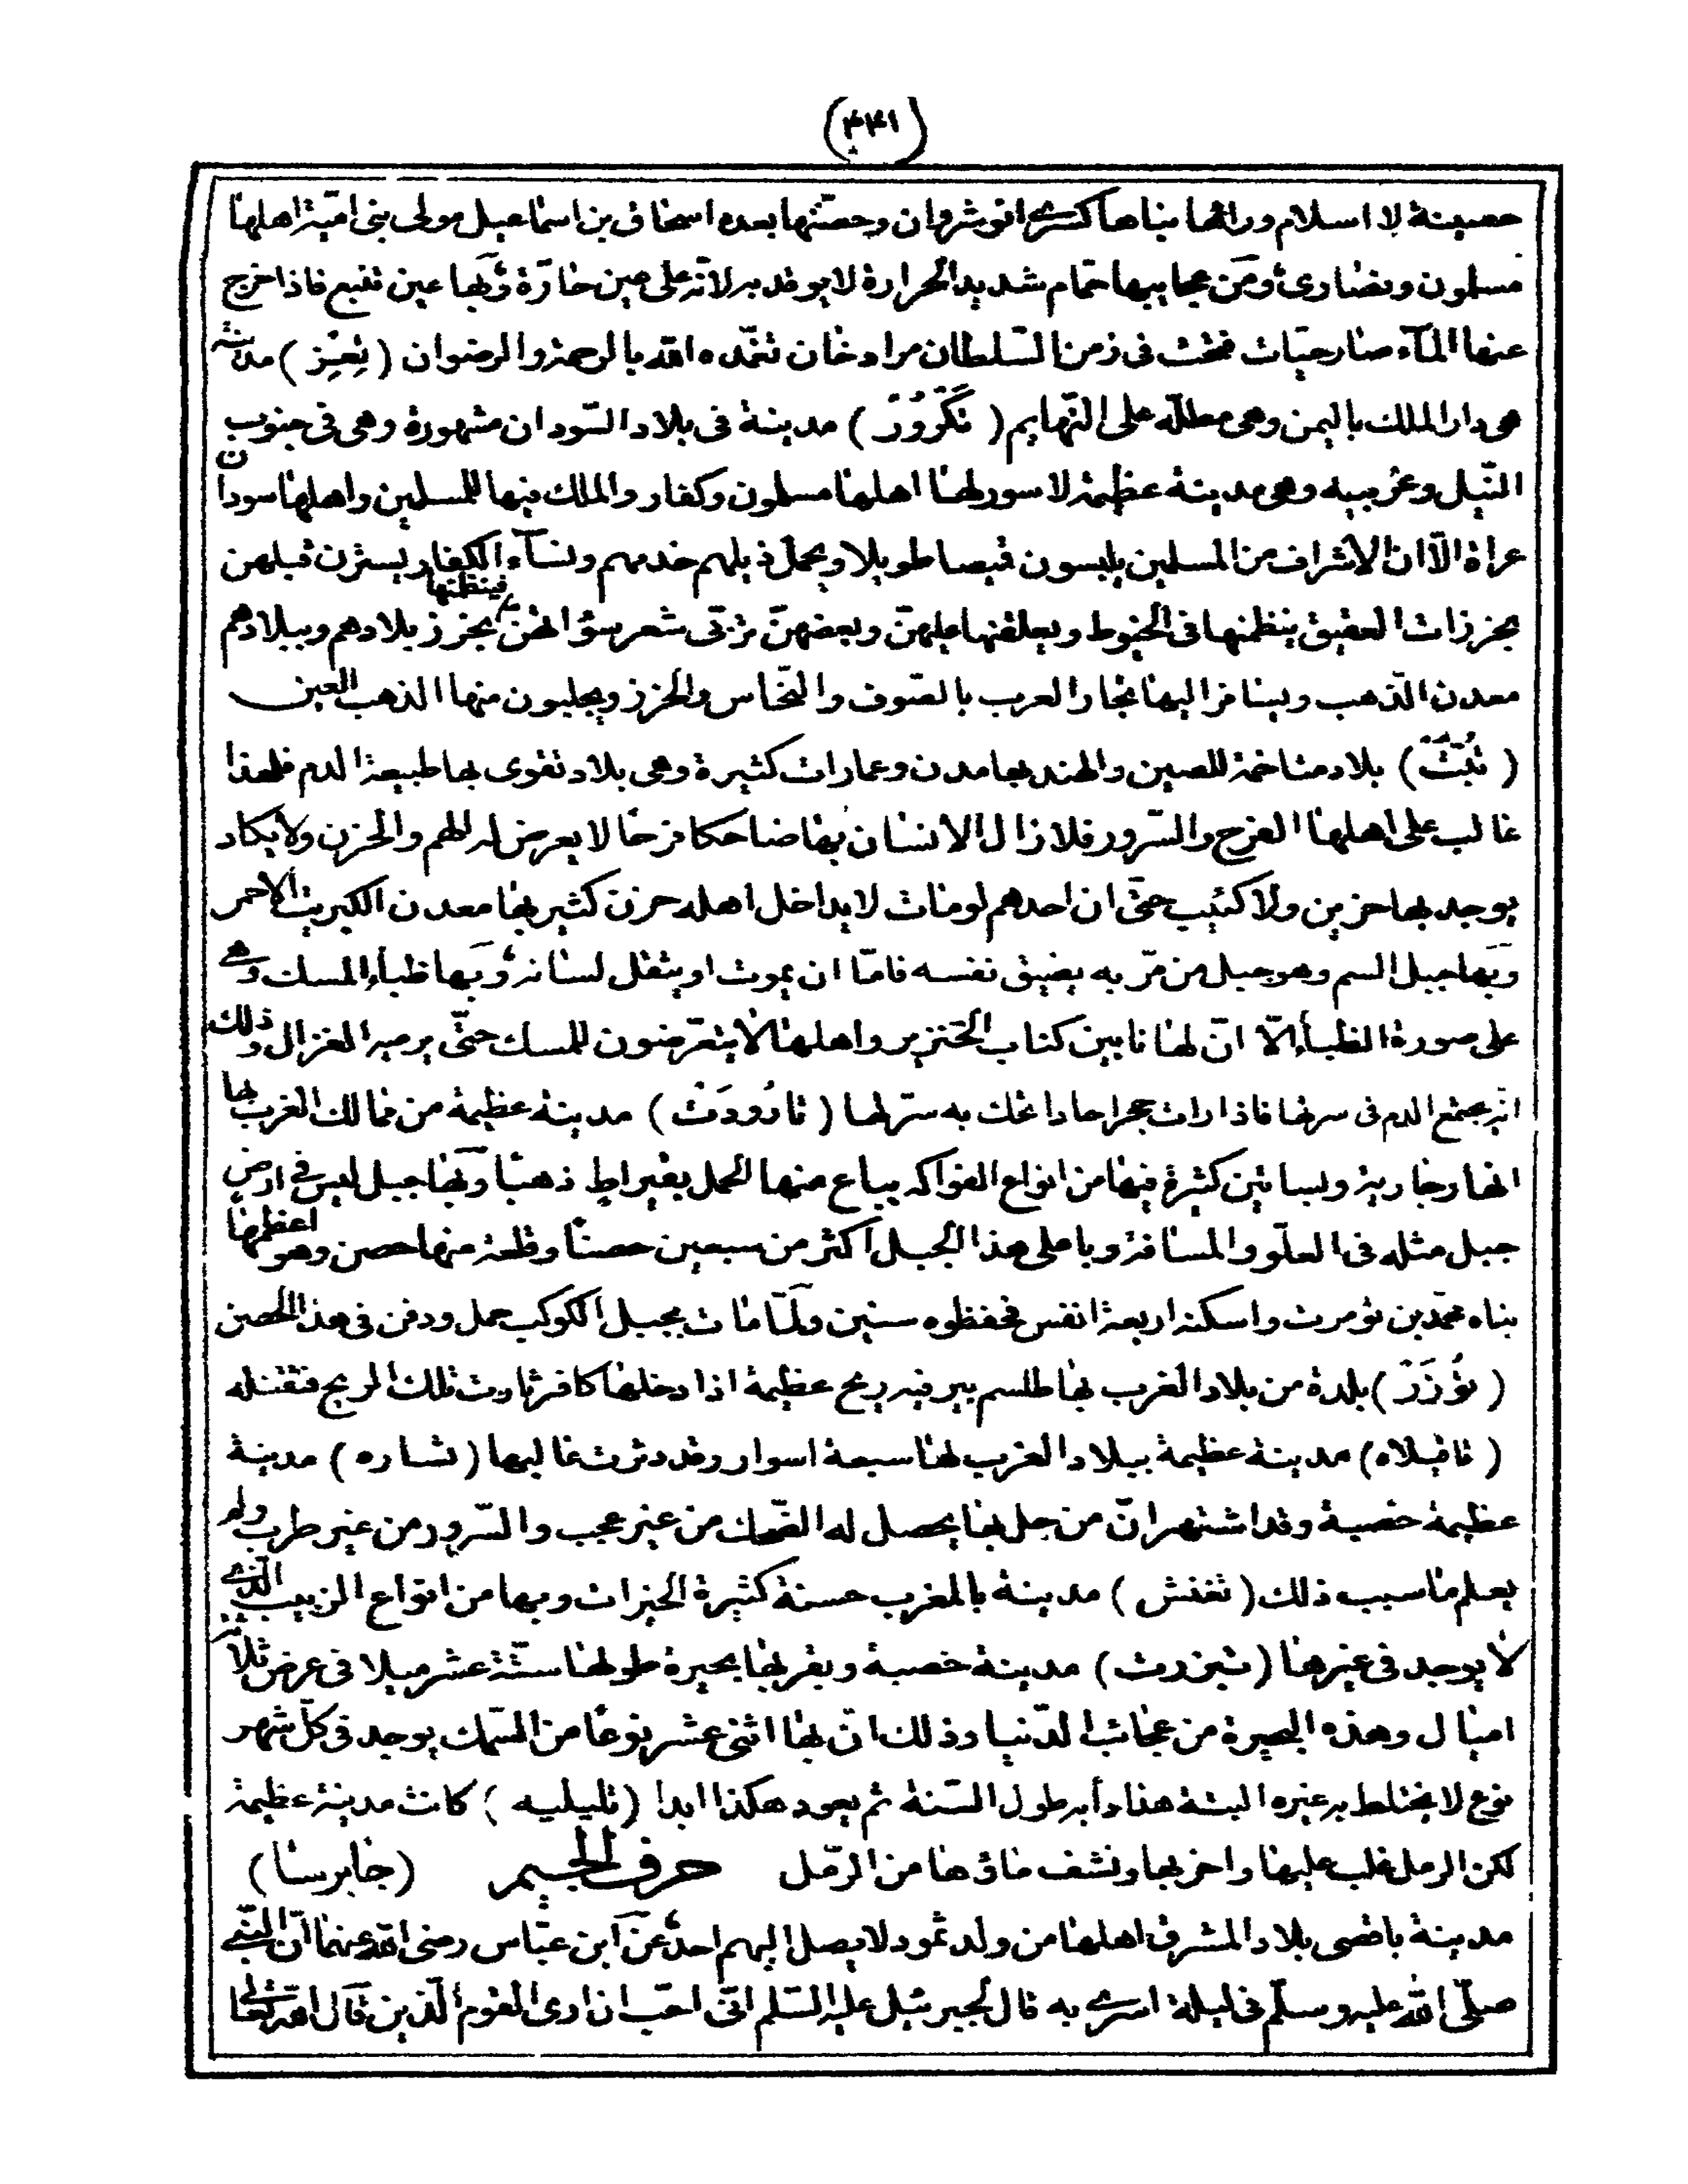 (٤٤١)
حصينة لا اسلام ورائها بناها كسرى انوشروان وحصنها بعده اسحاق بن اسماعيل مولى بنى امية اهلها
مسلمون ونصارى ومن عجايبها حمام شديد الحرارة لا يوقد به لانه على عين حارة وبها عين تنبع فاذا خرج
عنها المآء صار حيات فتحت فى زمن السلطان مراد خان تغمده الله بالرحمة والرضوان (تِعِزِ) مدينة
هى دار الملك باليمن وهى مطلة على التهايم (تَكْرُوُرْ) مدينة فى بلاد السودان مشهورة وهى فى جنوب
النيل وغربيه وهى مدينة عظيمة لا سور لها اهلها مسلمون وكفار والملك فيها للمسلمين واهلها سودان
عراة الّا ان الاشراف من المسلمين يلبسون قميصا طويلا ويحمل ذيلهم خدمهم ونسآء الكفار يسترن قبلهن
بخرزات العقيق ينظمنها فى الخيوط ويعلقنها عليهنّ وبعضهنّ ترقى شعر سؤالهن فينظمنها بخرز بلادهم وببلادهم
معدن الذهب ويسافر اليها تجار العرب بالصوف والنحاس والخرز ويجلبون منها الذهب العين
(تُبَّتَ) بلاد متاخمة للصين والهند بها مدن وعمارات كثيرة وهى بلاد تقوى بها طبيعة الدم فلهذا
غالب على اهلها الفرح والسرور فلا زال الانسان بها ضاحكا فرحا لا يعرض له الهم والحزن ولا يكاد
يوجد بها حزين ولا كئيب حتّى ان احدهم لو مات لا يداخل اهله حزن كثير بها معدن الكبريت الاحمر
وبها جبل السم وهو جبل من مرّ به يضيق نفسه فامّا ان يموت او يثقل لسانه وبها ظبأ المسك وهى
على صورة الظبأ الّا انّ لها نابين كناب الخنزير واهلها لا يتعرضون للمسك حتّى يرميه الغزال وذلك
انه يجتمع الدم فى سرتها فاذا رات حجرا حادا تحك به سرتها (تَارُودَتْ) مدينة عظيمة من ممالك الغرب بها
انهار جارية وبساتين كثيرة فيها من انواع الفواكه يباع منها الحمل بقيراط ذهبًا وبها جبل ليس فى ارض
جبل مثله فى العلو والمسافة وباعلى هذا الجبل اكثر من سبعين حصنًا وقلعة منها حصن وهو اعظمها
بناه محمد بن تومرت واسكنه اربعة انفس فحفظوه سنين ولمّا مات بجبل الكوكب حمل ودفن فى هذا الحصن
(تُوزَرْ) بلدة من بلاد الغرب بها طلسم بير فيه ريح عظيمة اذا دخلها كافر ثارت تلك الريح فتقتله
(تافيلاه) مدينة عظيمة ببلاد الغرب لها سبعة اسوار وقد دثرت غاليها (تساره) مدينة
عظيمة خصبة وقد اشتهر انّ من حل بها يحصل له الضحك من غير عجب والسرور من غير طرب ولم
يعلم ما سبب ذلك (تغنش) مدينة بالمغرب حسنة كثيرة الخيرات وبها من انواع الزبيب الذى
لا يوجد فى غيرها (تبزرت) مدينة خصبة وبقربها بحيرة طولها ستة عشر ميلا فى عرض ثلاثة
اميال وهذه البحيرة من عجائب الدنيا وذلك انّ بها اثنى عشر نوعًا من السمك يوجد فى كلّ شهر
نوع لا يختلط به غيره البتة هذا دأبه طول السنة ثم يعود هكذا ابدا (تليليه) كانت مدينة عظيمة
لكن الرمل غلب عليها واخربها ونشف ماؤها من الرمل حرف الجيم (جابرسا)
مدينة باقصى بلاد المشرق اهلها من ولد ثمود لا يصل اليهم احد عن ابن عبّاس رضى الله عنهما انّ النبى
صلّى الله عليه وسلّم فى ليلة اسرى به قال لجبرئيل عليه السّلم انّى احب ان ارى القوم الّذين قال الله تعالى